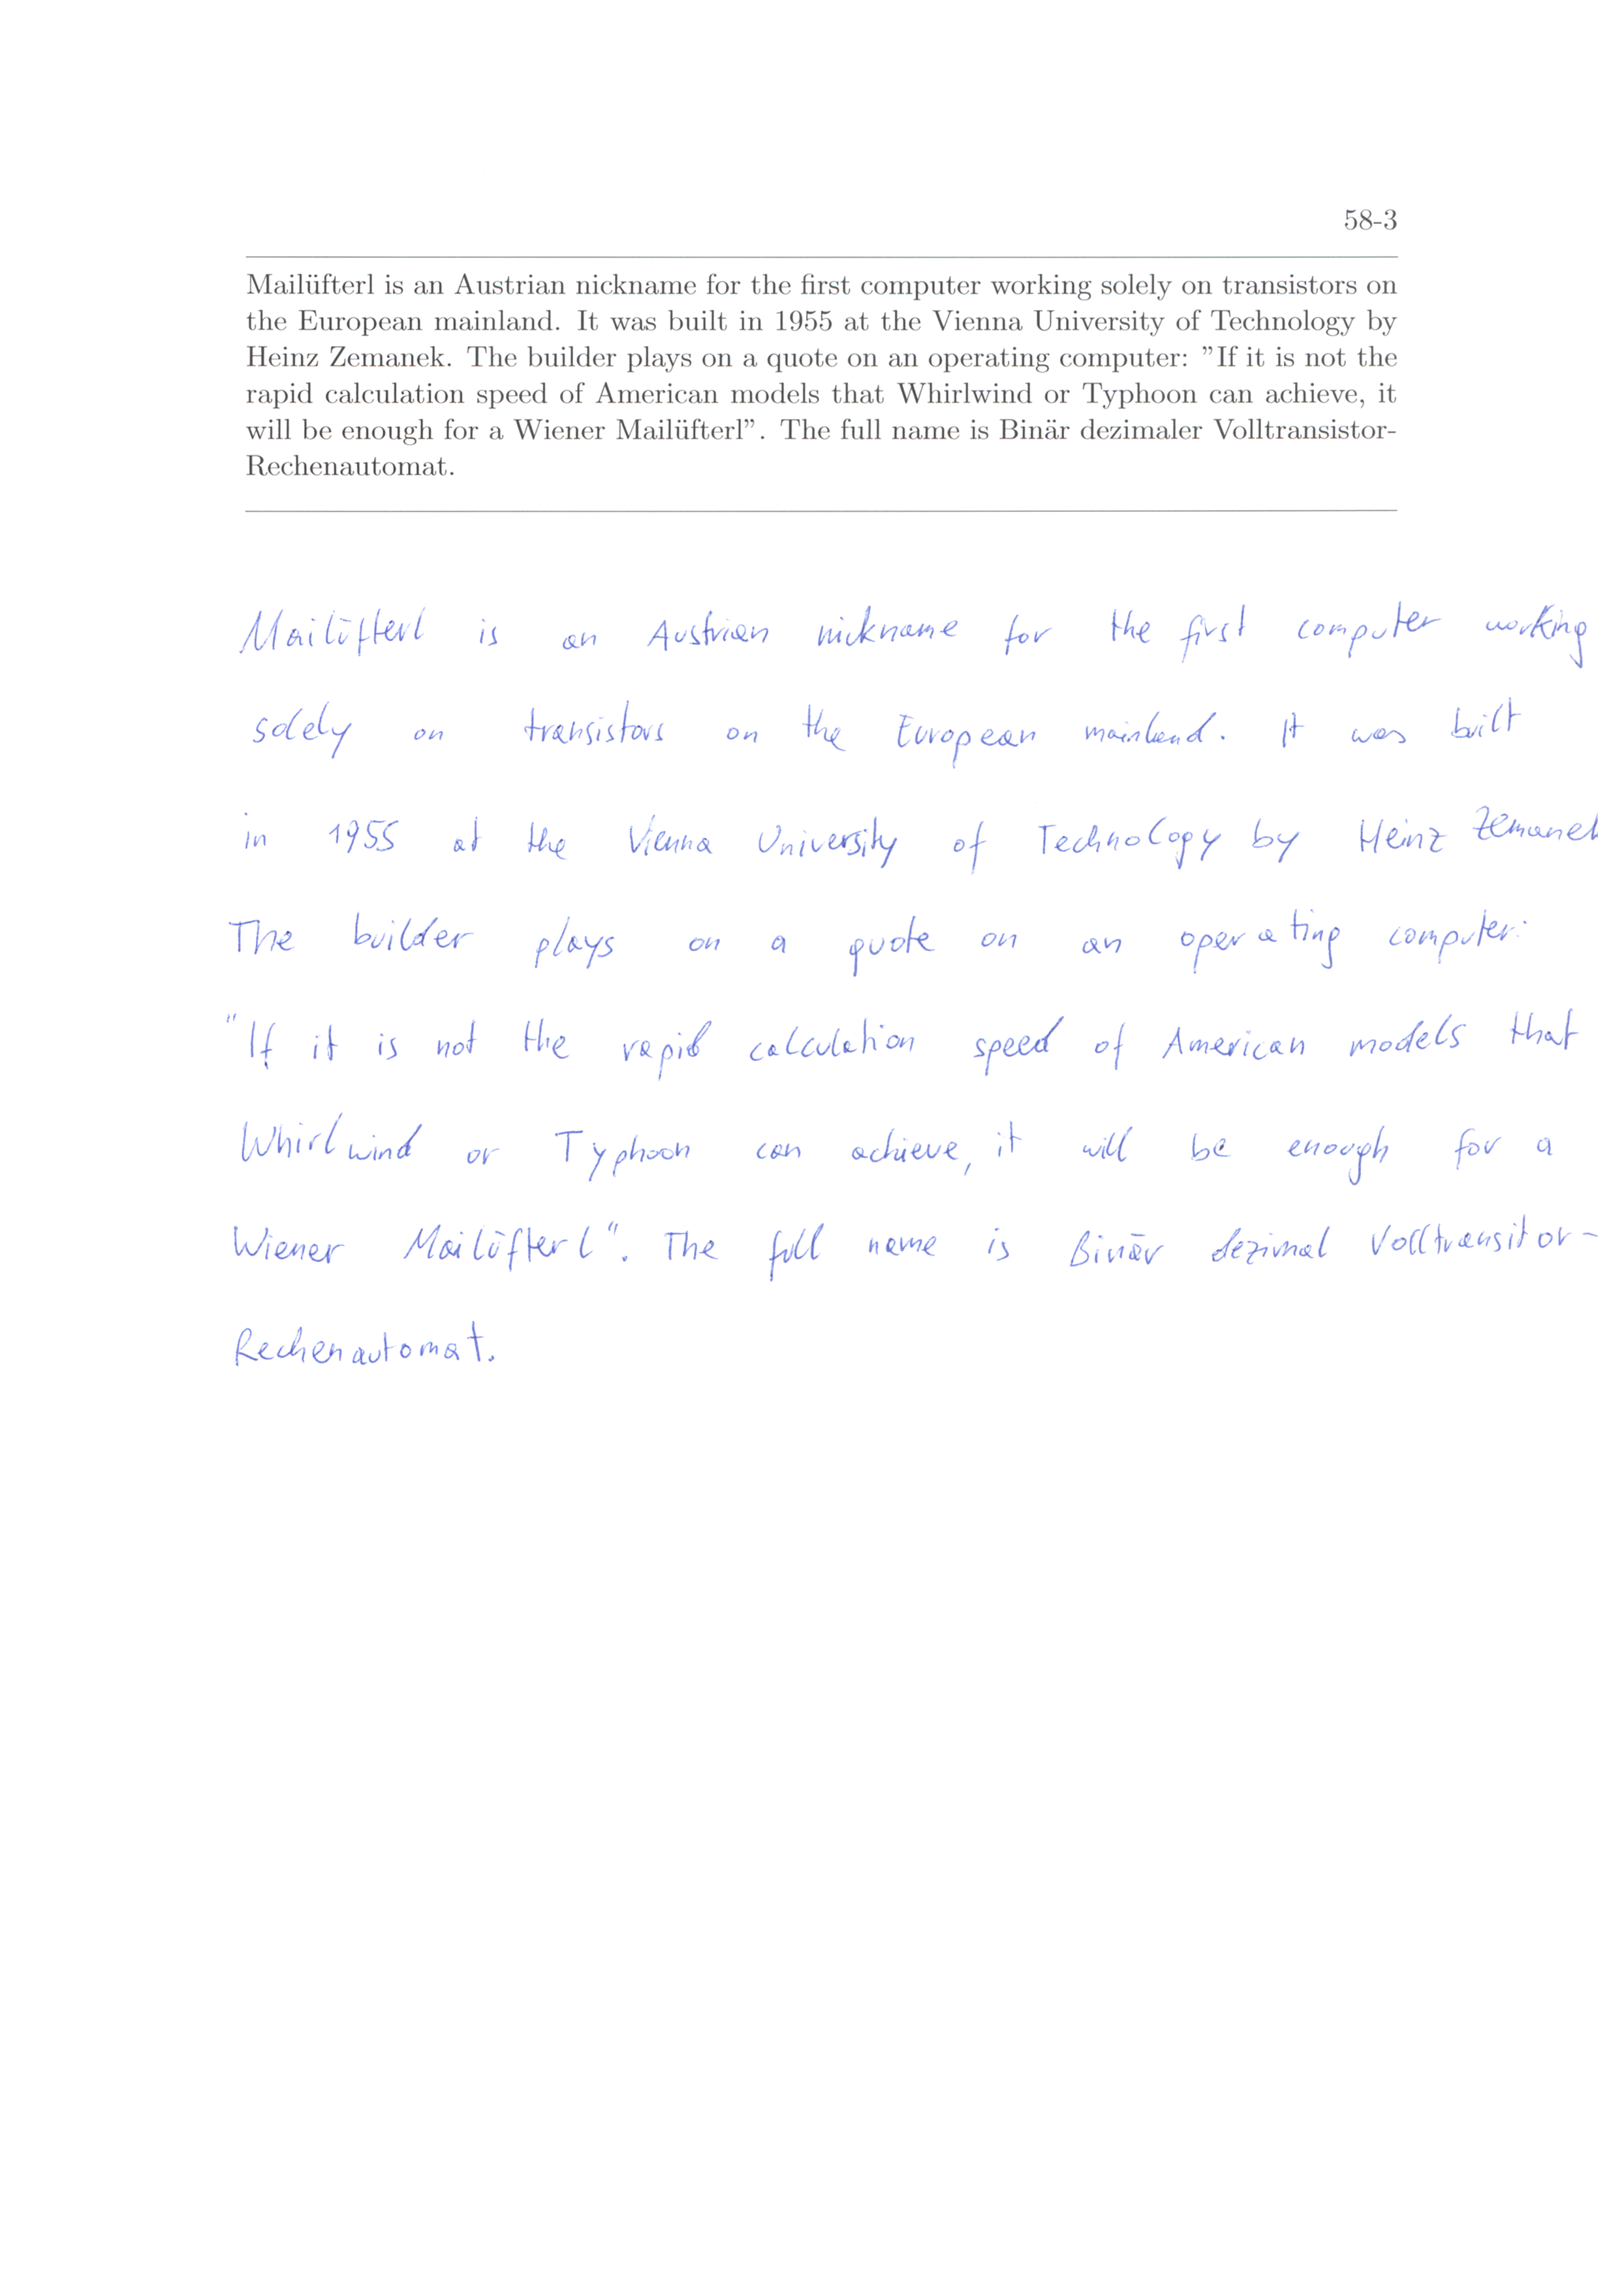 58-3
Mailüfterl is an Austrian nickname for the first computer working solely on transistors on
the European mainland. It was built in 1955 at the Vienna University of Technology by
Heinz Zemanek. The builder plays on a quote on an operating computer: ”If it is not the
rapid calculation speed of American models that Whirlwind or Typhoon can achieve, it
will be enough for a Wiener Mailüfterl”. The full name is Binär dezimaler Volltransistor-
Rechenautomat.
Mailüfterl is an Austrian nickname for the first computer working
solely on transistors on the European mainland. It was built
in 1955 at the Vienna University of Technology by Heinz Zemanek
The builder plays on a quote on an operating computer:
"If it is not the rapid calculation speed of American models that
Whirlwind or Typhoon can achieve, it will be enough for a
Wiener Mailüfterl". The full name is Binär dezimal Volltransitor-
Rechenautomat.